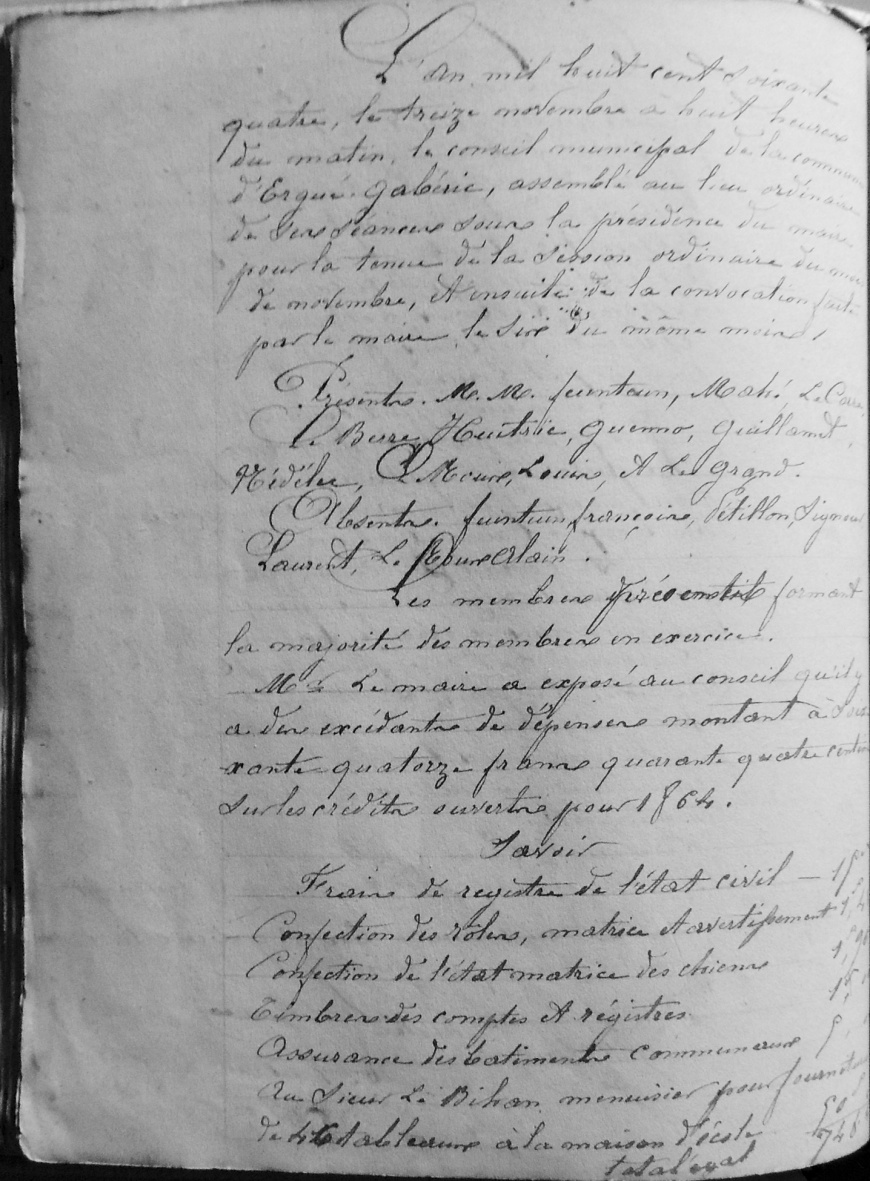 L'an mil huit cent soixante
quatre, le treize novembre à huit heures
du matin, le conseil municipal de la commune
d'Ergué-Gabéric, assemblé au lieu ordinaire
de ses séances sous la présidence du maire
pour la tenue de la session ordinaire du mois
de novembre, et ensuite de la convocation faite
par le maire le six du même mois,
Présents. M.M. feunteun, Mahé, Le Corre,
Le Berre, Huitric, Guenno, Guillamet,
Nédélec, Le Moine, Louis, et Le Grand.
Absents. feunteun françois, Pétillon, Signour
Laurent, Le Roux Alain.
Les membres présents formant
la majorité des membres en exercice.
Mr Le maire a exposé au conseil qu'il y
a des excédants de dépenses montant à Soi
xante quatorze francs quarante quatre centi
Sur les crédits ouverts pour 1864.
Savoir
Frais de registre de l'état civil —
Confection des rôles, matrice et avertissement
Confection de l'état matrice des chiens
Timbres des comptes et régistres
Assurance des batiments communaux
Au Sieur Le Bihan menuisier pour fournit
de tableaux à la maison d'école
total égal